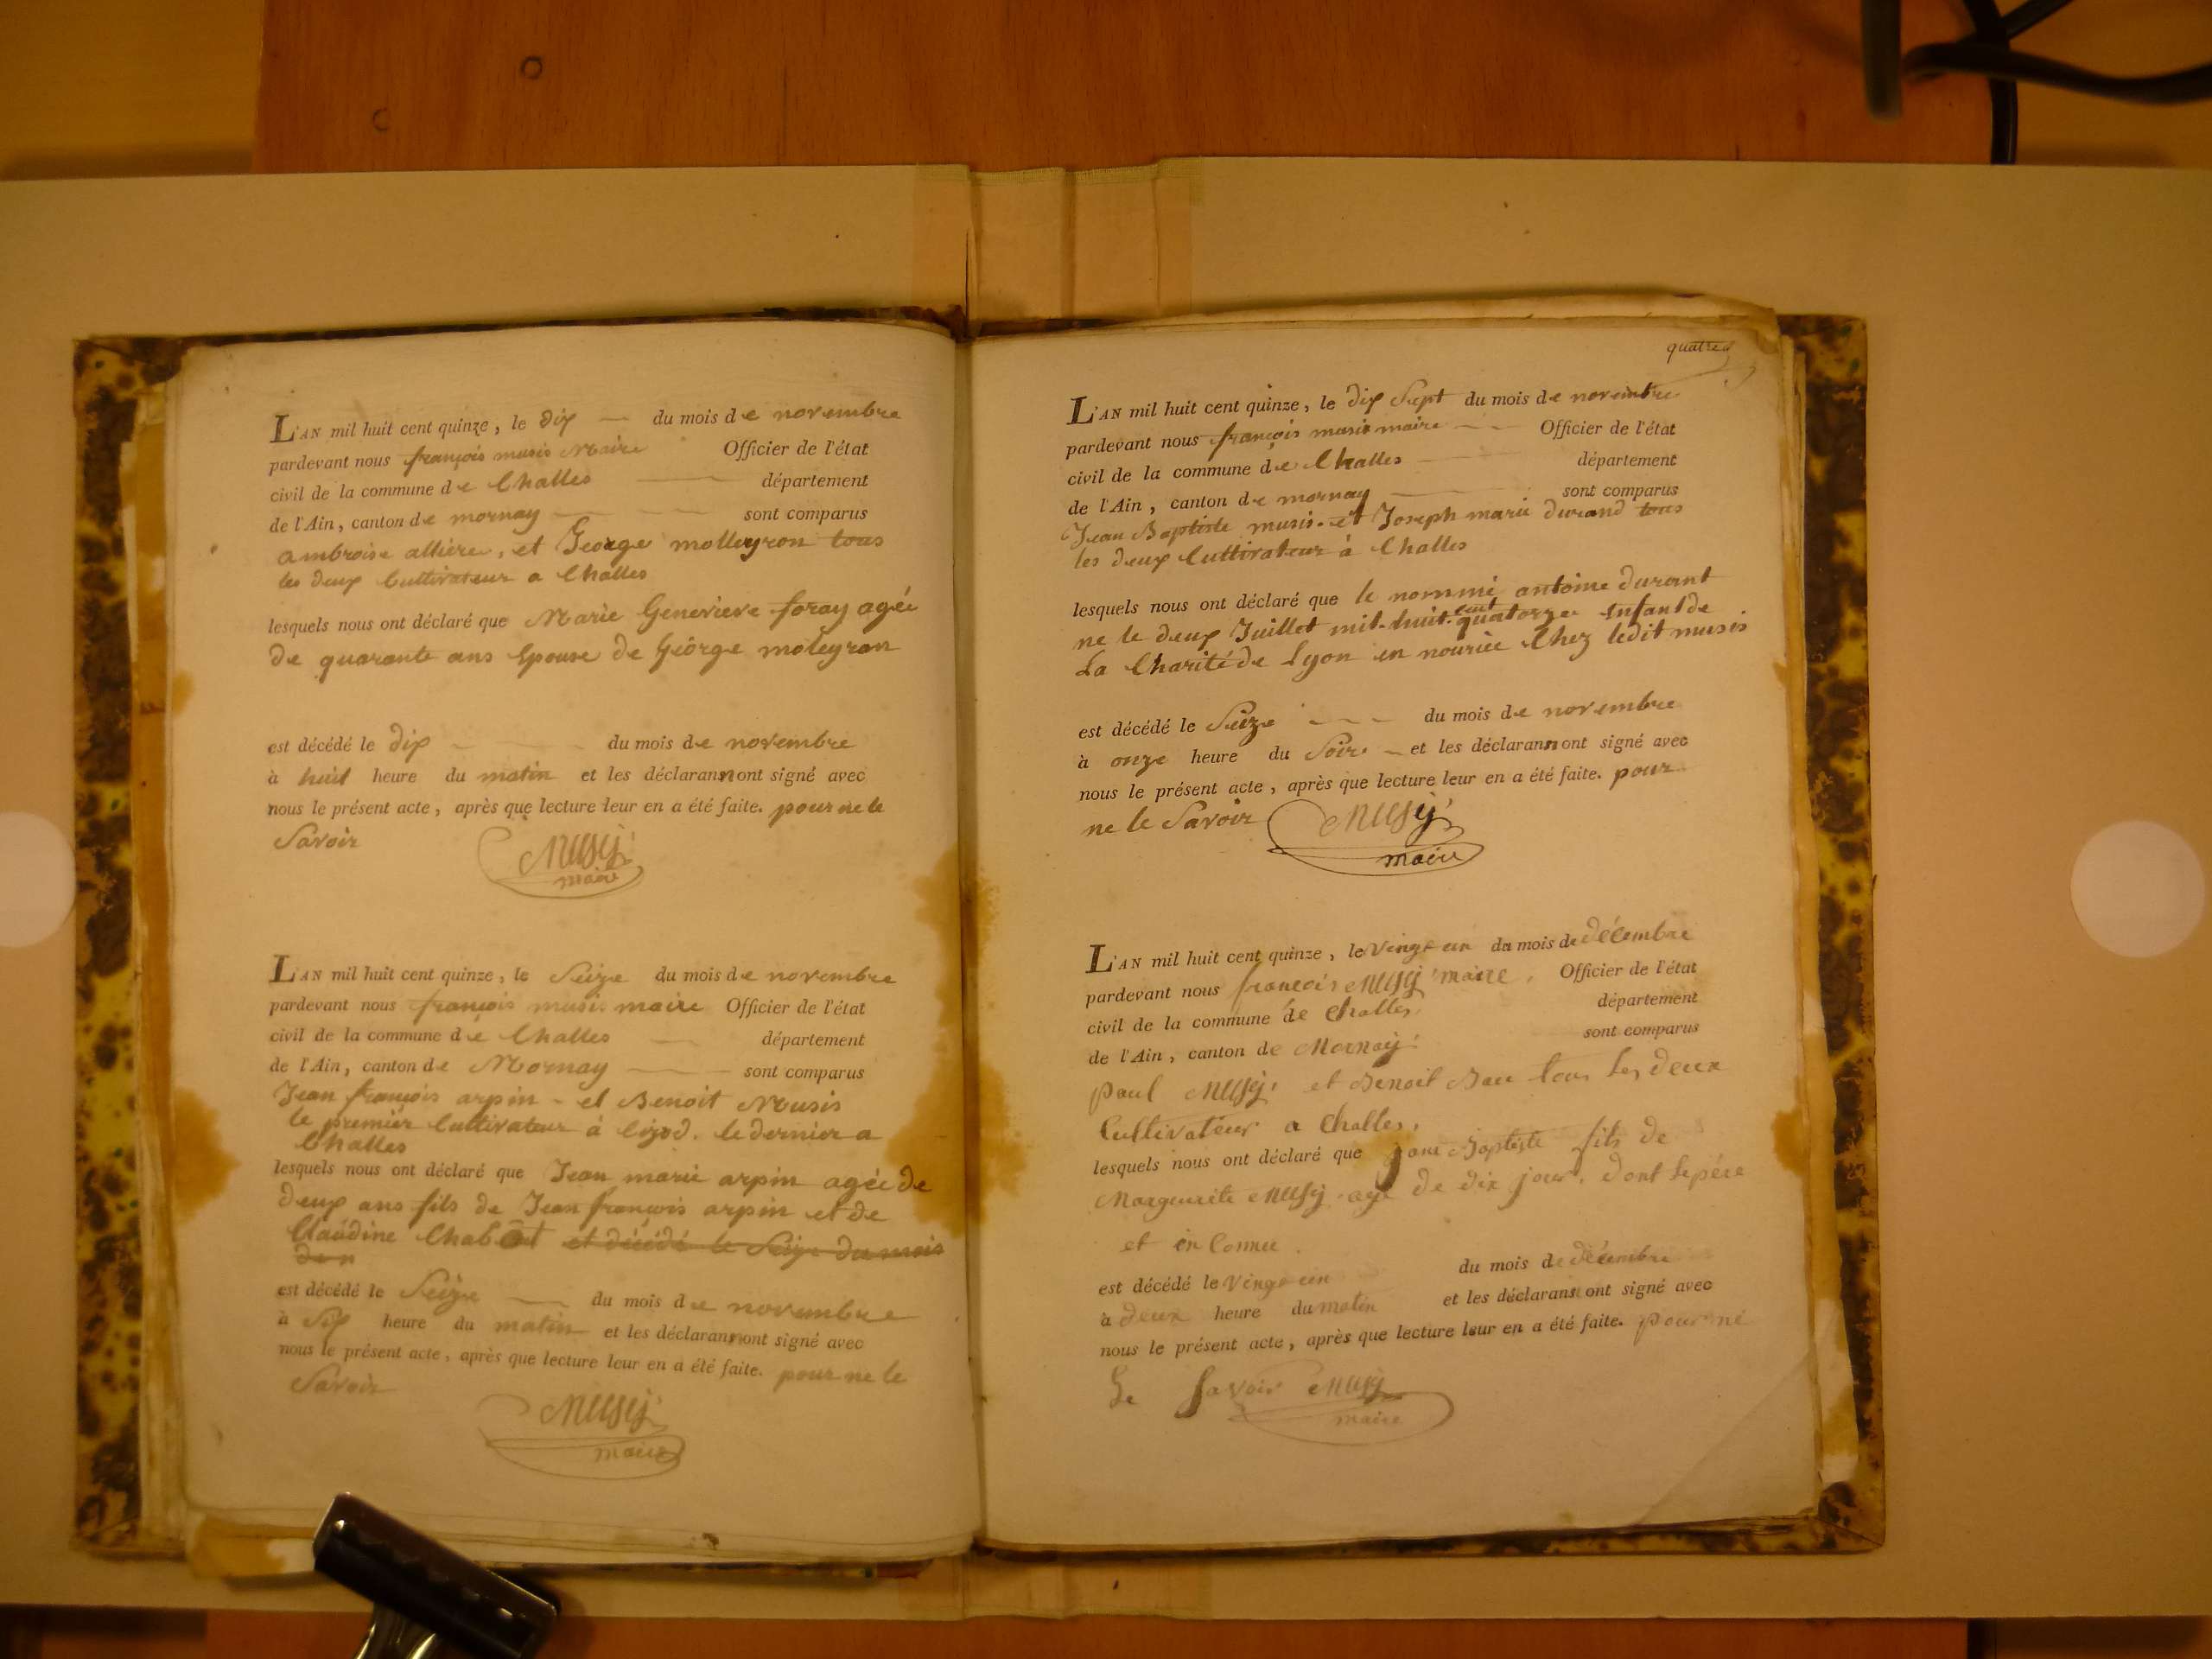 L'AN mil huit cent quinze, le dix du mois de novembre
pardevant nous françois musis Maire Officier de l'état
civil de la commune de Challes département
de l'Ain, canton de mornay sont comparus
ambroise alliere, et George molleyron tous
les deux Cultivateur a Challes
lesquels nous ont déclaré que Marie Genevieve foray agée
de quarante ans Epouse de Géorge moleyron
est décédé le dix du mois de novembre
à huit heure du matin et les déclarans n ont signé avec
nous le présent acte, après que lecture leur en a été faite. pour ne le
Savoir Musy
maire
L'AN mil huit cent quinze, le Seize du mois de novembre
pardevant nous françois musis maire Officier de l'état
civil de la commune de Challes département
de l'Ain, canton de Mornay sont comparus
Jean françois arpin - et Benoit Musis
le premier Cultivateur à Cizod. le dernier a
Challes
lesquels nous ont déclaré que Jean marie arpin agée de
deux ans fils de Jean françois arpin et de
Claudine et décédé le Seize du mois
de n
est décédé le Seize du mois de novembre
à Six heure du matin et les déclarans n ont signé avec
nous le présent acte, après que lecture leur en a été faite. pour ne le
Savoir
Musy
maire
quatre
L'AN mil huit cent quinze, le dix Sept du mois de novembre
pardevant nous françois musis maire Officier de l'état
civil de la commune de Challes département
de l'Ain, canton de mornay sont comparus
Jean Baptiste musis. et Joseph marie durand tous
les deux Cultivateur à Challes
lesquels nous ont déclaré que le nommé antoine durant
ne le deux Juillet mil-huit-cent quatorze Enfant de
La Charité de Lyon en nourice Chez ledit musis
est décédé le Seize du mois de novembre
à onze heure du Soir et les déclarans n ont signé avec
nous le présent acte, après que lecture leur en a été faite. pour
ne le Savoir Musy
maire
L'AN mil huit cent quinze, le Vingt un du mois de décembre
pardevant nous francois Musy maire. Officier de l'état
civil de la commune de Challes, département
de l'Ain, canton de Mornay sont comparus
paul Musy et Benoit tous les deux
Cultivateur a Challes,
lesquels nous ont déclaré que Baptiste fils de
Marguerite Musy agé de dix jour, dont le père
et in Connue
est décédé le Vingt un du mois de décembre
à deux heure du matin et les déclarans ont signé avec
nous le présent acte, après que lecture leur en a été faite. pour ne
Le Savoir Musy
maire